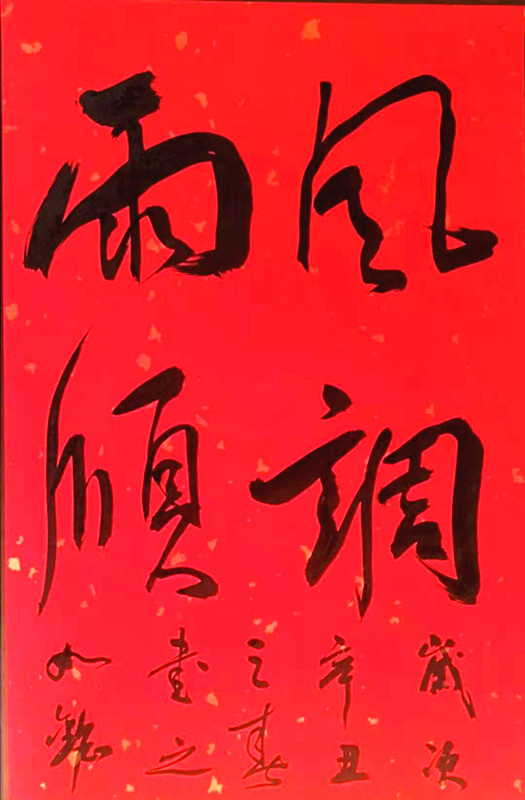 風調
雨順
歲次
辛丑
之春
書之
如